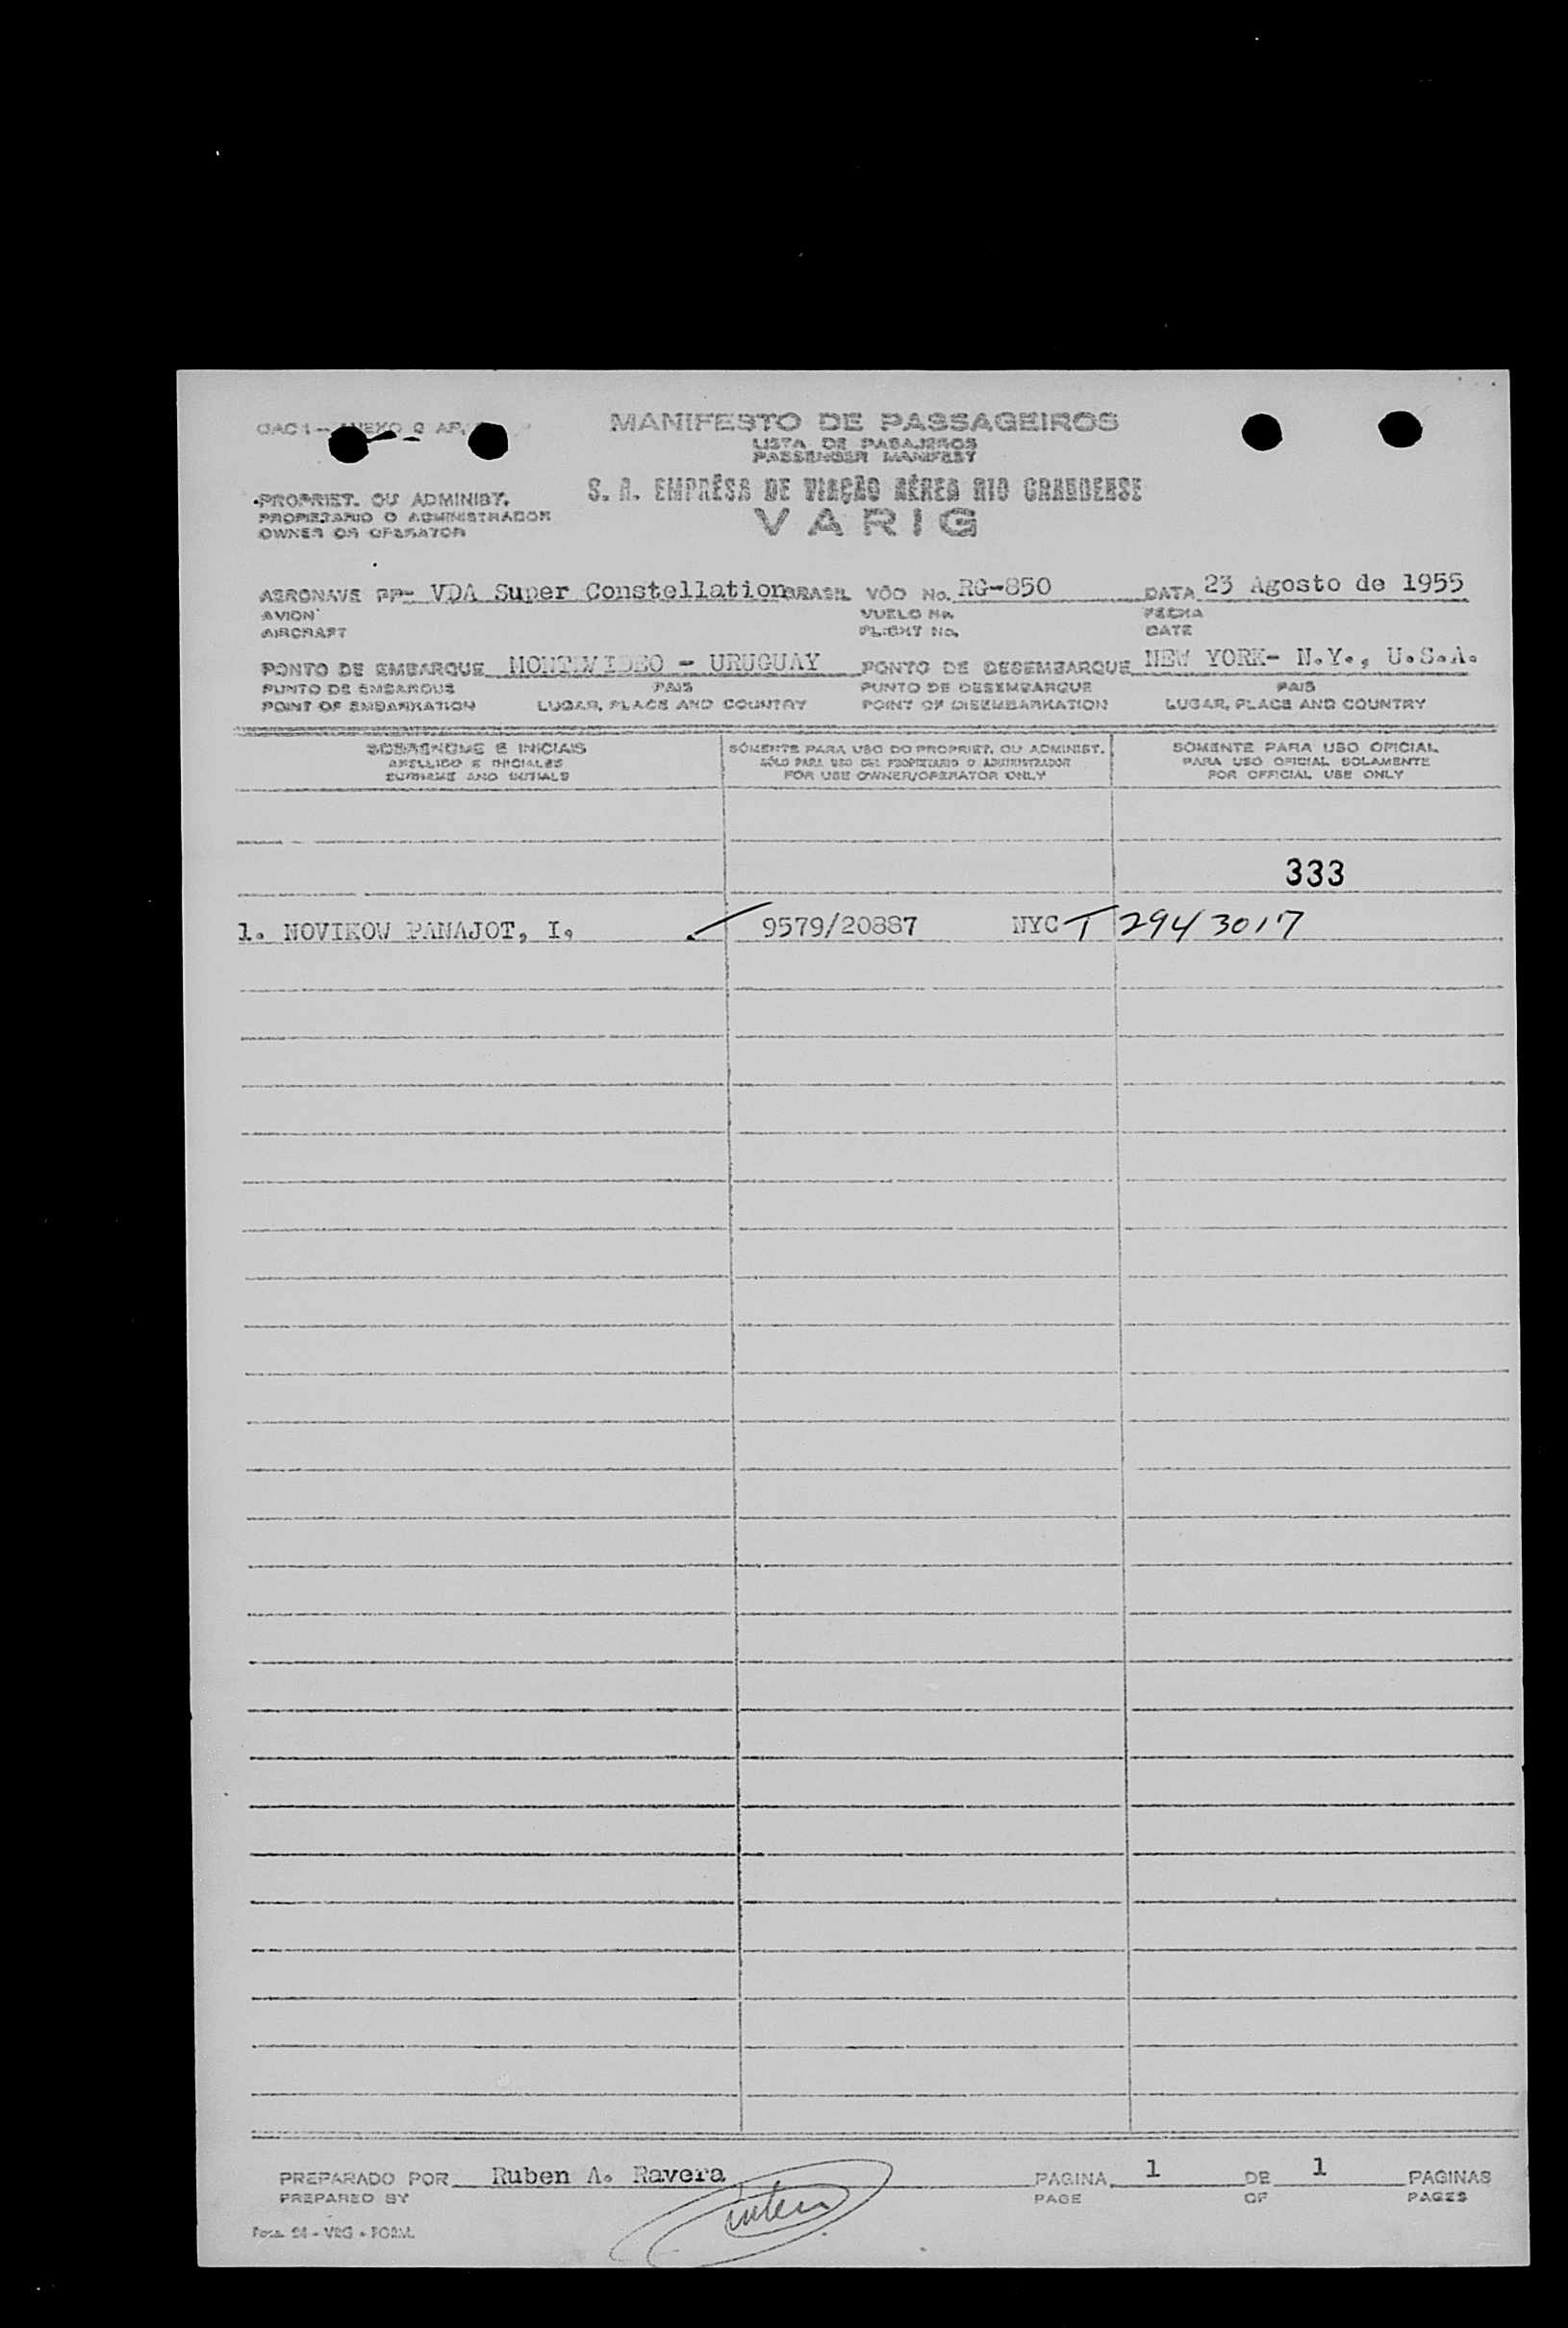 MANIFESTO DE PASSAGEIROS
LISTA DE PASAJEROS
PASSENGER MANIFEST
S. A. EMPRÊSA DE VIAÇÃO AÉREA RIO GRANDENSE
VARIG
PROPRIET. OU ADMINIST.
PROPIETARIO O ADMINISTRADOR
OWNER OR OPERATOR
AERONAVE PP- VDA Super Constellation BRASIL VÔO No. RG-850 DATA 23 Agosto de 1955
AVION VUELO No. FECHA
AIRCRAFT FLIGHT No. DATE
PONTO DE EMBARQUE MONTEVIDEO - URUGUAY PONTO DE DESEMBARQUE NEW YORK- N.Y., U.S.A.
PUNTO DE EMBARQUE PAIS PUNTO DE DESEMBARQUE PAIS
POINT OF EMBARKATION LUGAR, PLACE AND COUNTRY POINT OF DISEMBARKATION LUGAR, PLACE AND COUNTRY
SOBRENOME E INICIAIS SÓMENTE PARA USO DO PROPRIET. OU ADMINIST. SOMENTE PARA USO OFICIAL
APELLIDO E INICIALES SÓLO PARA USO DEL PROPIETARIO O ADMINISTRADOR PARA USO OFICIAL SOLAMENTE
SURNAME AND INITIALS FOR USE OWNER/OPERATOR ONLY FOR OFFICIAL USE ONLY
333
1. NOVIKOW PANAJOT, I. 9579/20887 NYC T 2943017
PREPARADO POR Ruben A. Ravera PAGINA 1 DE 1 PAGINAS
PREPARED BY PAGE OF PAGES